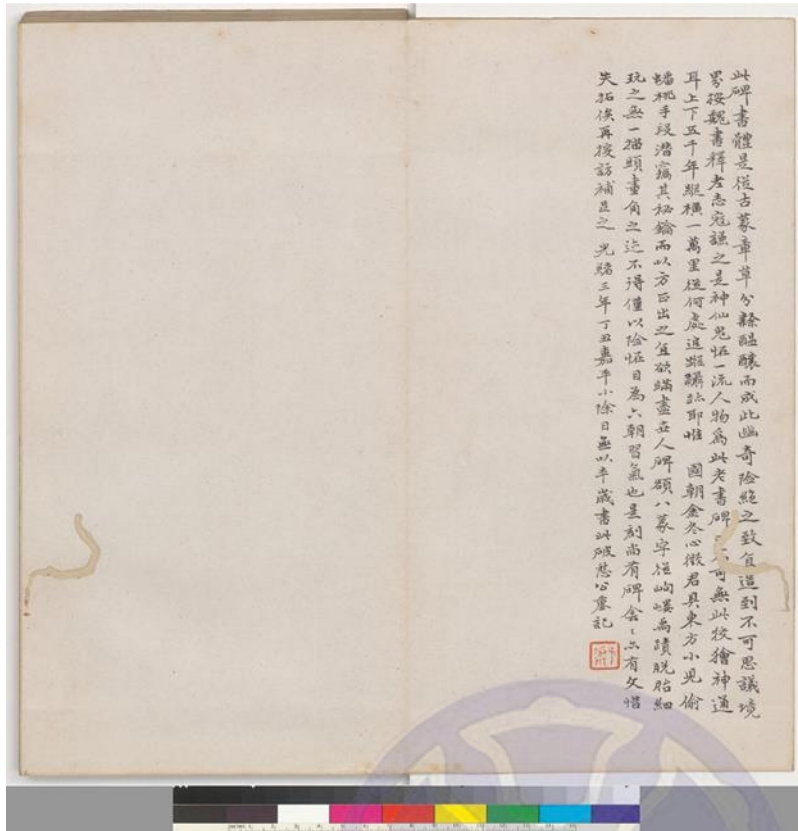 此碑書體是從古篆章草分隸醖釀而成此幽奇險絶之致直造到不可思議境
界按魏書釋老志寇謙之是神仙鬼怪一流人物爲此老書碑可無此狡獪神通
耳上下五千年縱橫一萬里從何處追蹤躡跡耶惟 國朝金冬心徵君具東方小兒偷
蟠桃手段潛竊其秘鑰而以方正出之直欲瞞盡世人碑額八篆字從岣嶁禹蹟脱胎細
玩之無一描頭畫角之迹不得僅以險怪目為六朝習氣也是刻尚有碑舍〻亦有文惜
失拓俟再搜訪補足之 光緒三年丁丑嘉平小除日無以卒歲書此破愁公䆳記